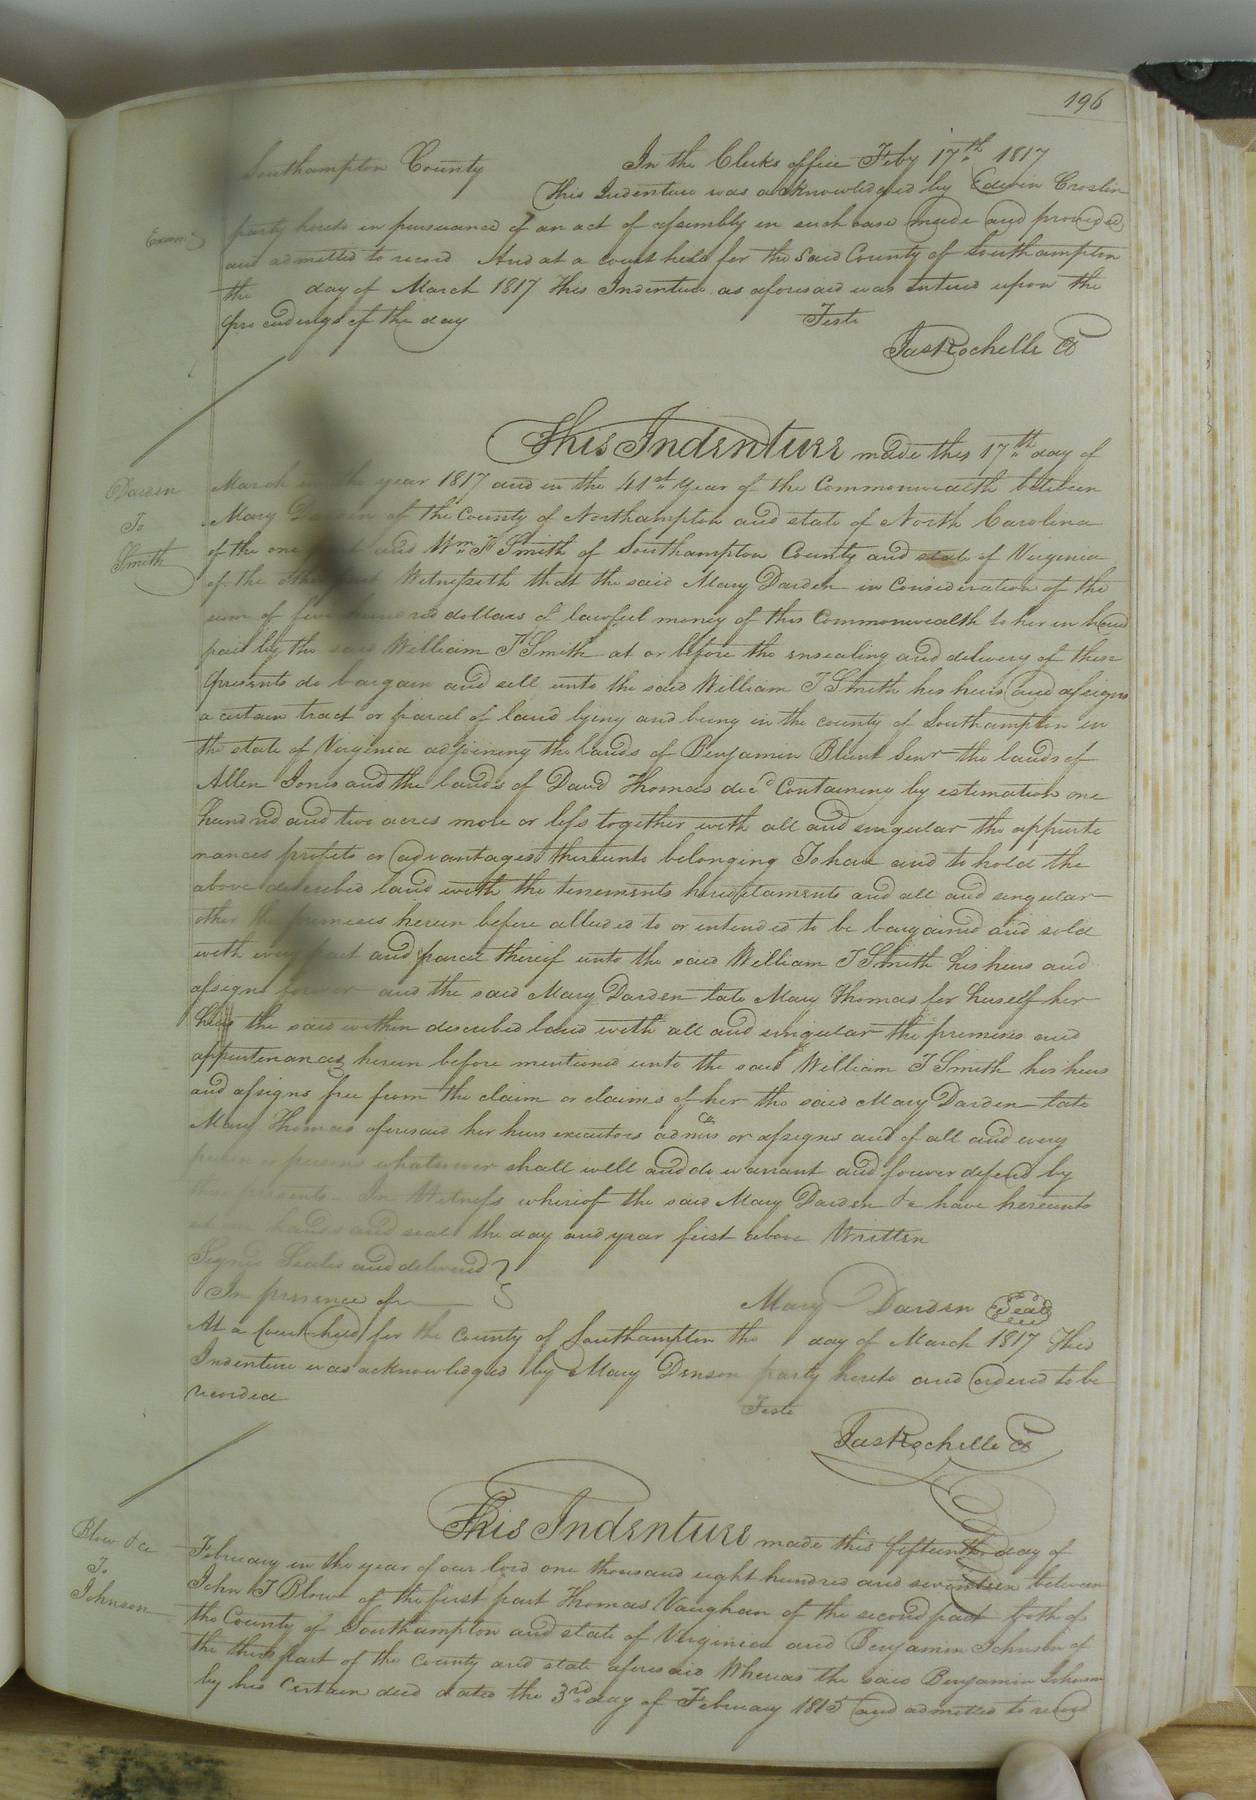 196
Southampton County In the Clerks office Feby 17th 1817
This Indenture was acknowledged by Edwin Croslin
party hereto in pursuance of an act of assembly in such case made and provided
and admitted to record And at a court held for the said County of Southampton
the day of March 1817 This Indenture as aforesaid was entered upon the
proceedings of the day Teste
Jas Rochelle Cl
This Indenture made this 17th day of
Darden
To
Smith
March in the year 1817 and in the 41st year of the Commonwealth between
Mary Darden of the County of Northampton and state of North Carolina
of the one part and Wm T Smith of Southampton County and state of Virginia
of the other part Witnesseth that the said Mary Darden in consideration of the
sum of five hundred dollars of lawful money of this Commonwealth to her in hand
paid by the said William T Smith at or before the ensealing and delivery of these
presents do bargain and sell unto the said William T Smith his heirs and assigns
a certain tract or parcel of land lying and being in the county of Southampton in
the state of Virginia adjoining the lands of Benjamin Blunt Senr the lands of
Allen Jones and the lands of David Thomas decd Containing by estimation one
hundred and two acres more or less together with all and singular the appurte
nances profits or advantages thereunto belonging To have and to hold the
above described land with the tenements hereditaments and all and singular
other the premises herein before alluded to or intended to be bargained and sold
with every part and parcel thereof unto the said William T Smith his heirs and
assigns forever and the said Mary Darden late Mary Thomas for herself her
heirs the said within described land with all and singular the premises and
appurtenances herein before mentioned unto the said William T Smith his heirs
and assigns free from the claim or claims of her the said Mary Darden late
Mary Thomas aforesaid her heirs executors admrs or assigns and of all and every
person or persons whatsoever shall will and do warrant and forever defend by
these presents In Witness whereof the said Mary Darden &c have hereunto
set hands and seal the day and year first above Written
Signed Sealed and delivered
In presence of
Mary Darden Seal
At a Court held for the County of Southampton the day of March 1817 This
Indenture was acknowledged by Mary Denson party hereto and ordered to be
recorded
Teste
Jas Rochelle Cl
This Indenture made this fifteenth day of
Blow &c
To
Johnson
February in the year of our lord one thousand eight hundred and seventeen between
John T Blow of the first part Thomas Vaughan of the second part both of
the County of Southampton and state of Virginia and Benjamin Johnson of
the third part of the county and state aforesaid Whereas the said Benjamin Johnson
by his certain deed dated the 3rd day of February 1815 and admitted to record